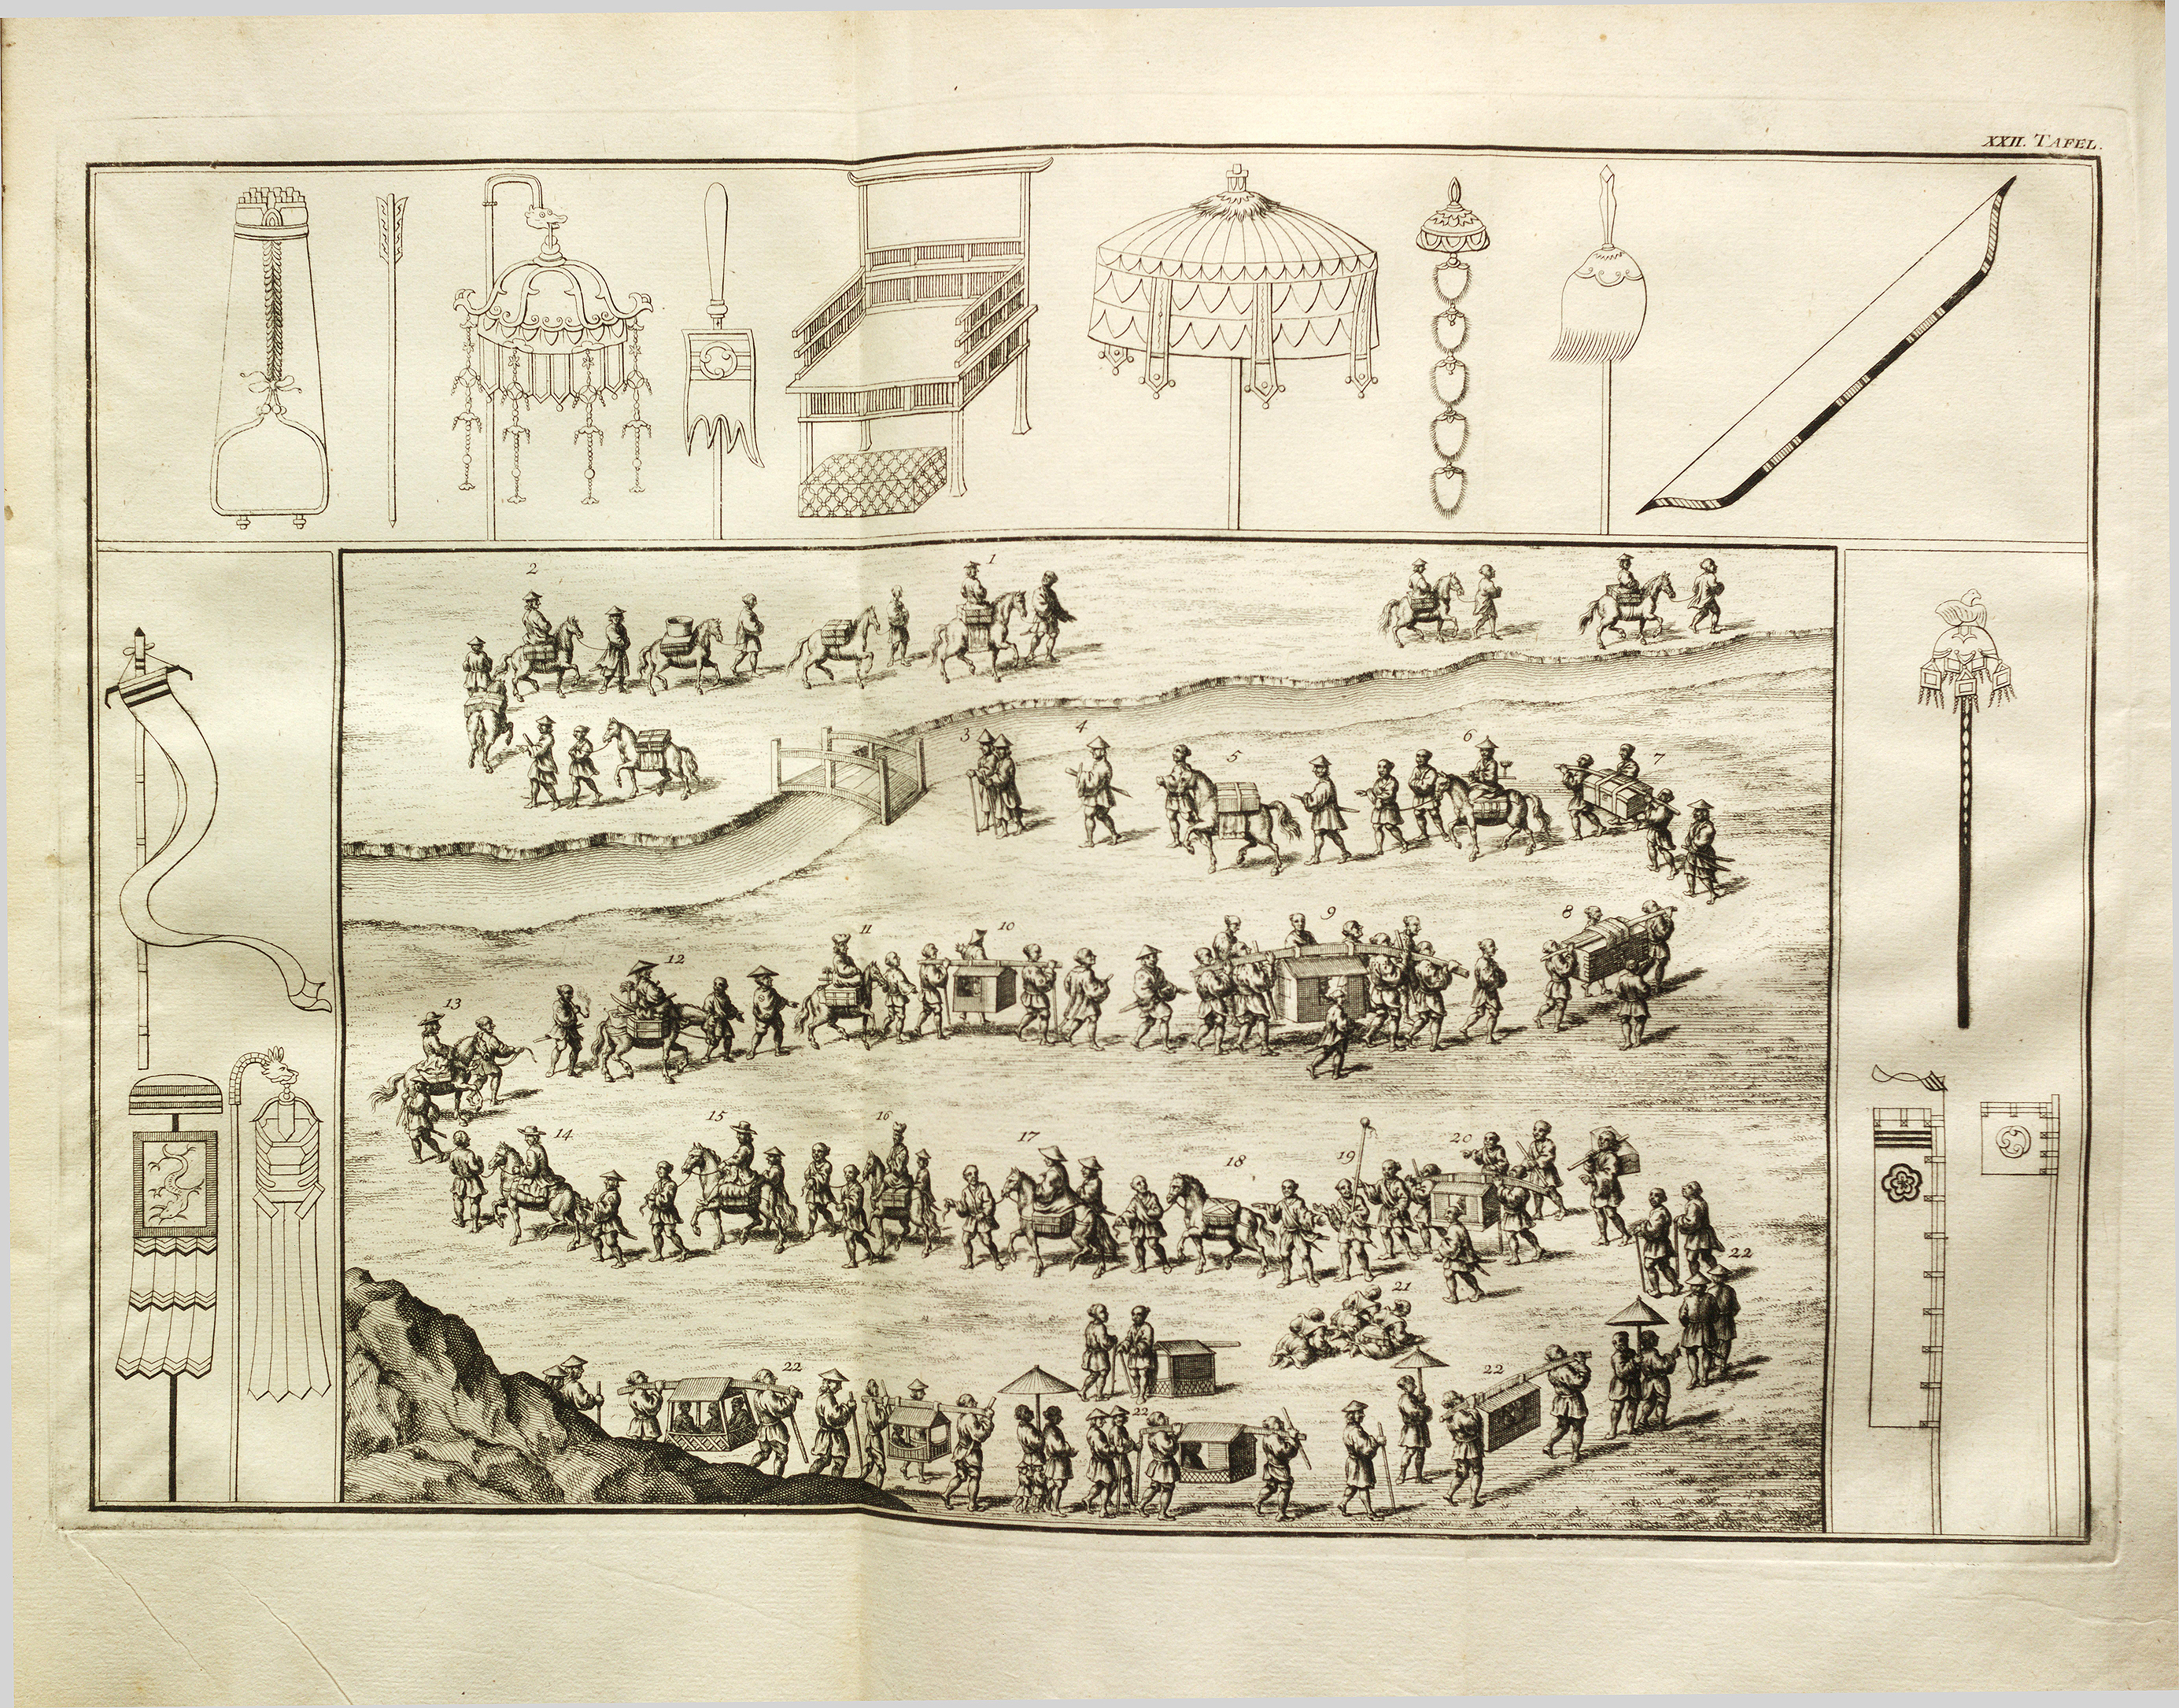 XXII. TAFEL.
2
1
3
4
5
6
7
8
9
10
11
12
13
14
15
16
17
18
19
20
22
21
22
22
22